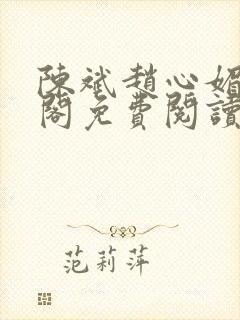 陳斌趙心媚
閣免費閱讀
范莉萍